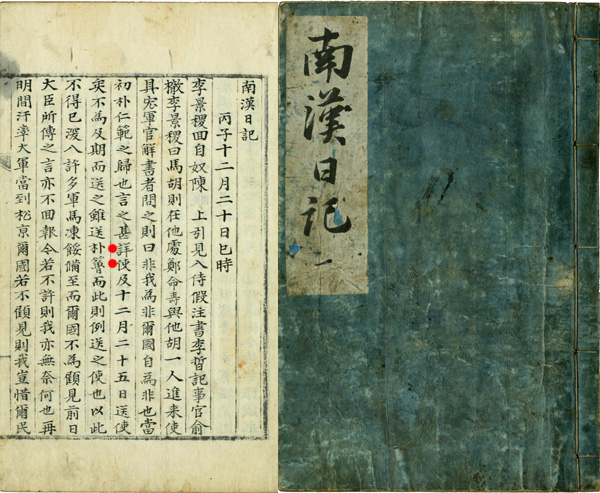 南漢日記 一
南漢日記
丙子十二月二十日巳時
李景稷回自奴陳 上引見入侍假注書李晳記事官俞
檄李景稷曰馬胡則在他處鄭命壽與他胡一人進来使
具宏軍官解書者問之則曰非我為非爾國自為非也當
初朴仁範之歸也言之甚詳使及十二月二十五日送使
矣不為及期而送之雖送朴而此則例送之使也以此
不得已深入許多軍馬凍餒備至而爾國不為顧見前日
大臣所傳之言亦不回報今若不許則我亦無奈何也再
明間汗率大軍當到松京爾國若不顧見則我豈惜爾民